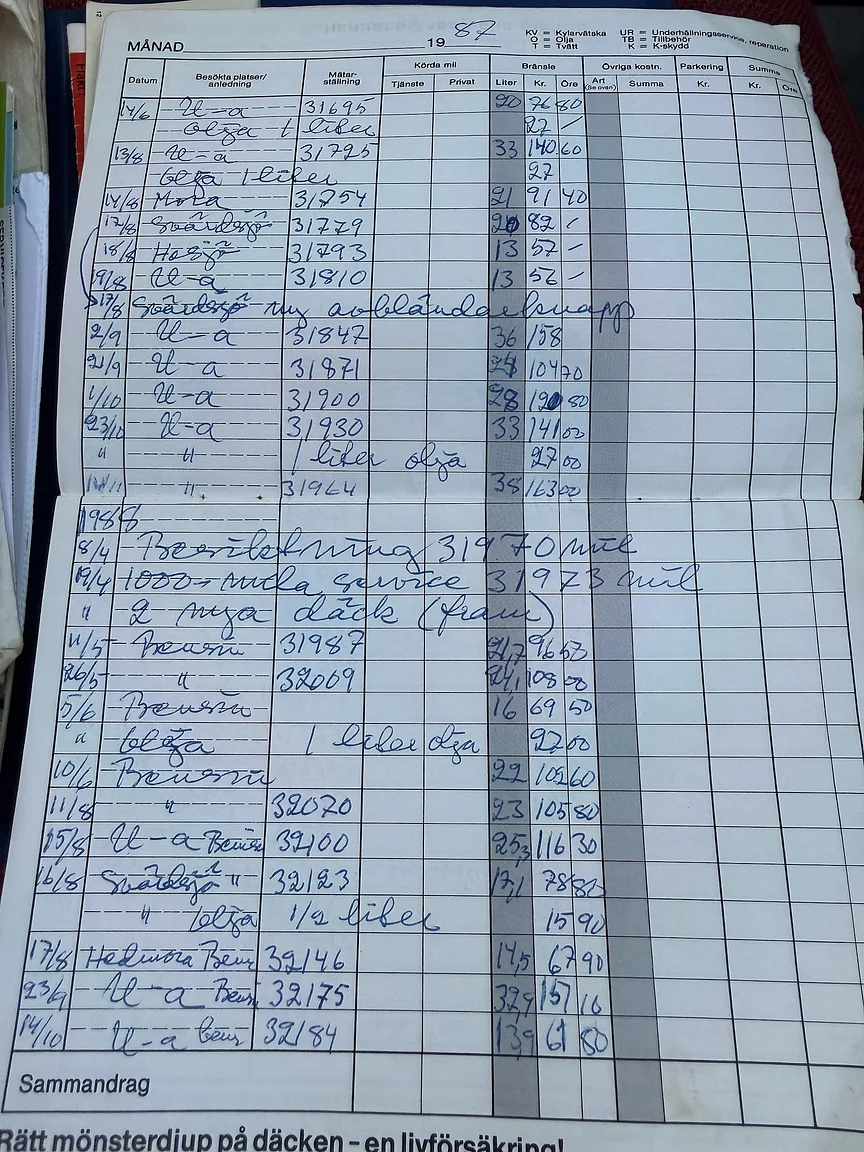 MÅNAD 19 87
KV = Kylarvätska UR = Underhållningsservice, reparation
O = Olja TB = Tillbehör
T = Tvätt K = K-skydd
Datum Besökta platser/anledning Mätarställning Körda mil Bränsle Övriga kostn. Parkering Summa
Tjänste Privat Liter Kr. Öre Art (Se ovan) Summa Kr. Kr. Öre
14/6 U-a 31695 20 76 80
olja 1 liter 27 -
13/8 U-a 31725 33 140 60
olja 1 liter 27
14/8 Mora 31754 21 91 40
17/8 Svärdsjö 31779 20 82 -
18/8 Hosjö 31793 13 57 -
19/8 U-a 31810 13 56 -
17/8 Svärdsjö ny avbländarknapp
2/9 U-a 31847 36 158
21/9 U-a 31871 24 104 70
1/10 U-a 31900 28 120 80
23/10 U-a 31930 33 141 00
" " 1 liter olja 27 00
" 31964 38 163 00
1988
8/4 Besiktning 31970 mil
19/4 1000-mila service 31973 mil
" 2 nya däck (fram)
11/5 Bensin 31987 21,7 96 50
26/5 " 32009 24,1 108 00
5/6 Bensin 16 69 50
" Olja 1 liter olja 27 00
10/6 Bensin 22 102 60
11/8 " 32070 23 105 80
15/8 U-a Bensin 32100 25,3 116 30
16/8 Svärdsjö " 32123 17,1 78 80
" olja 1/2 liter 15 90
17/8 Hedmora Bens 32146 14,5 67 90
23/9 U-a Bens 32175 32,9 151 16
14/10 U-a bens 32184 13,9 61 80
Sammandrag
Rätt mönsterdjup på däcken – en livförsäkring!